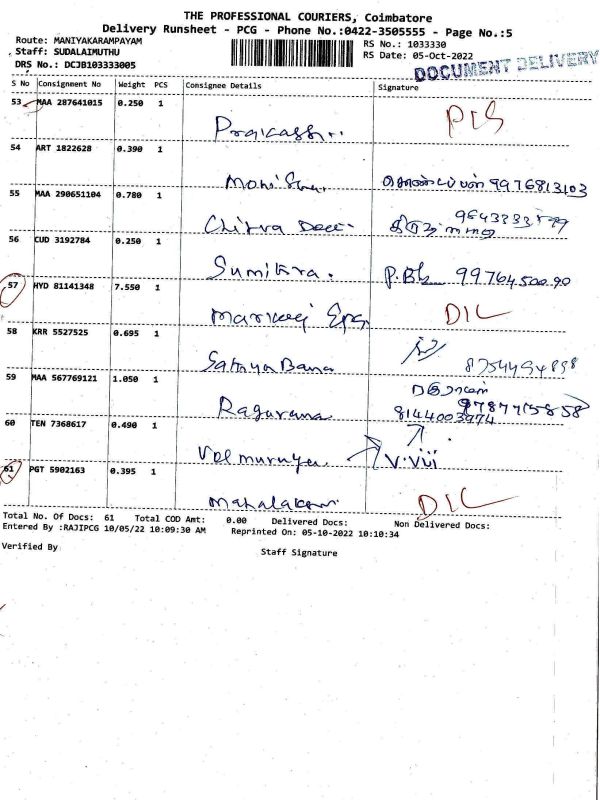 THE PROFESSIONAL COURIERS, Coimbatore
Delivery Runsheet - PCG - Phone No.:0422-3505555 - Page No.:5
Route: MANIYAKARAMPAYAM
RS No.: 1033330
Staff: SUDALAIMUTHU
RS Date: 05-Oct-2022
DRS No.: DCJB103333005
DOCUMENT DELIVERY
S No Consignment No Weight PCS Consignee Details Signature
53 MAA 287641015 0.250 1
54 ART 1822628 0.390 1
9976813103
55 MAA 290651104 0.780 1
Chitra
56 CUD 3192784 0.250 1
Sumitra. 9976450090
57 HYD 81141348 7.550 1
DIL
58 KRR 5527525 0.695 1
Sathya Bama 8754494898
59 MAA 567769121 1.050 1
8144003974
60 TEN 7368617 0.490 1
61 PGT 5902163 0.395 1
DIL
Total No. Of Docs: 61 Total COD Amt: 0.00 Delivered Docs: Non Delivered Docs:
Entered By :RAJIPCG 10/05/22 10:09:30 AM Reprinted On: 05-10-2022 10:10:34
Verified By
Staff Signature